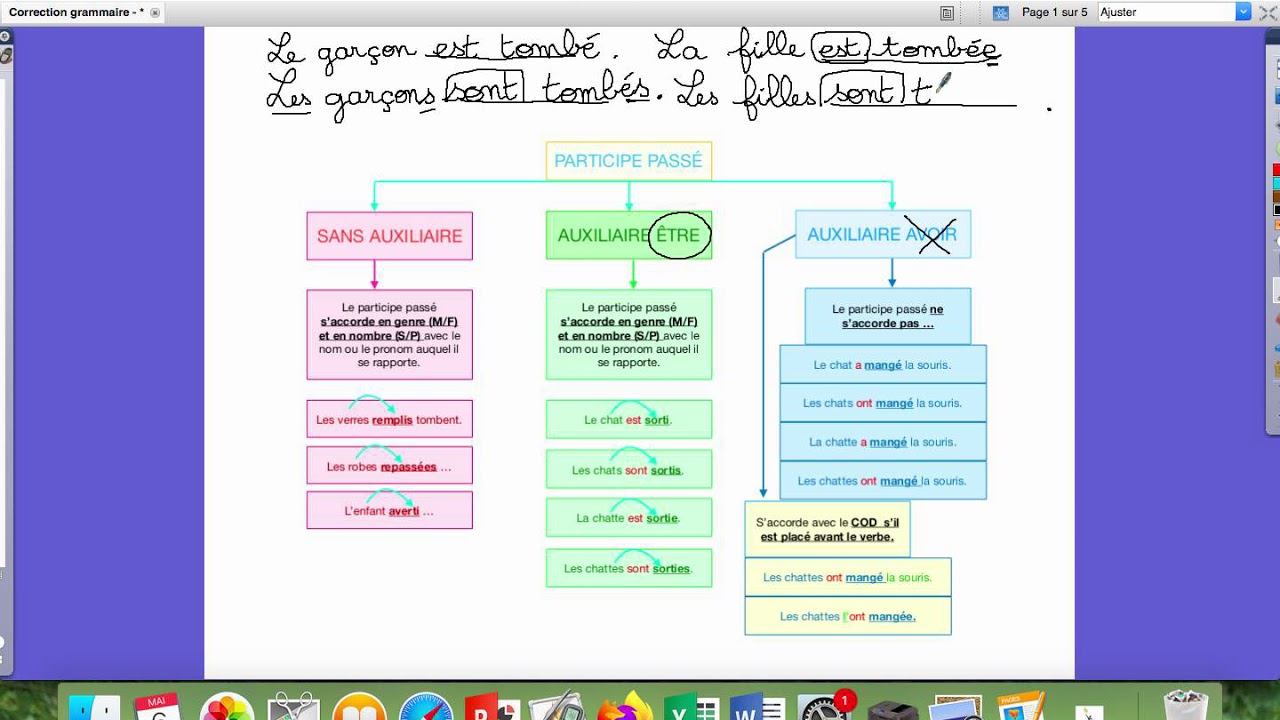 Correction grammaire - *
Page 1 sur 5
Ajuster
Le garçon est tombé. La fille est tombée
Les garçons sont tombés. Les filles sont t .
PARTICIPE PASSÉ
SANS AUXILIAIRE
Le participe passé
s'accorde en genre (M/F)
et en nombre (S/P) avec le
nom ou le pronom auquel il
se rapporte.
Les verres remplis tombent.
Les robes repassées ...
L'enfant averti ...
AUXILIAIRE ÊTRE
Le participe passé
s'accorde en genre (M/F)
et en nombre (S/P) avec le
nom ou le pronom auquel il
se rapporte.
Le chat est sorti.
Les chats sont sortis.
La chatte est sortie.
Les chattes sont sorties.
AUXILIAIRE AVOIR
Le participe passé ne
s'accorde pas ...
Le chat a mangé la souris.
Les chats ont mangé la souris.
La chatte a mangé la souris.
Les chattes ont mangé la souris.
S'accorde avec le COD s'il
est placé avant le verbe.
Les chattes ont mangé la souris.
Les chattes l'ont mangée.
MAI
6
P
X
W
1
PAGES